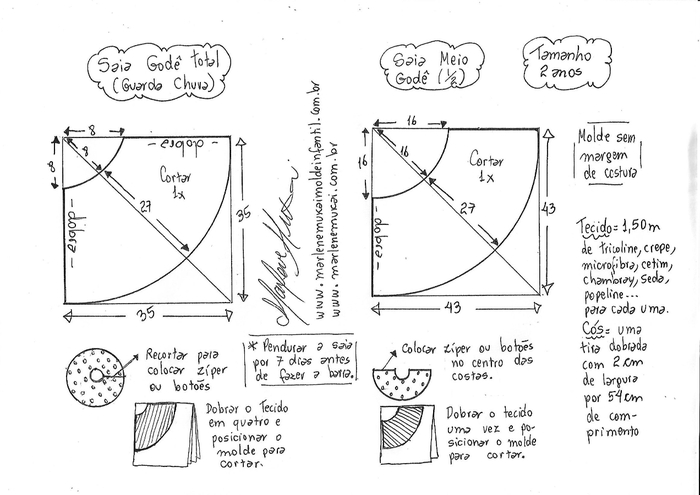 Saia Godê total
(Guarda Chuva)
8
- dobra -
8
8
Cortar
1x
27
35
- dobra -
35
Recortar para
colocar zíper
ou botões
Dobrar o Tecido
em quatro e
posicionar o
molde para
cortar.
www.marlenemukaimoldeinfantil.com.br
www.marlenemukai.com.br
* Pendurar a saia
por 7 dias antes
de fazer a barra.
Saia Meio
Godê (1/2)
16
16
16
Cortar
1x
27
43
- dobra -
43
Colocar zíper ou botões
no centro das
costas.
Dobrar o tecido
uma vez e po-
sicionar o molde
para cortar.
Tamanho
2 anos
Molde sem
margem
de costura
Tecido = 1,50m
de tricoline, crepe,
microfibra, cetim,
chambray, seda,
popeline...
para cada uma.
Cós = uma
tira dobrada
com 2 cm
de largura
por 54 cm
de com-
primento